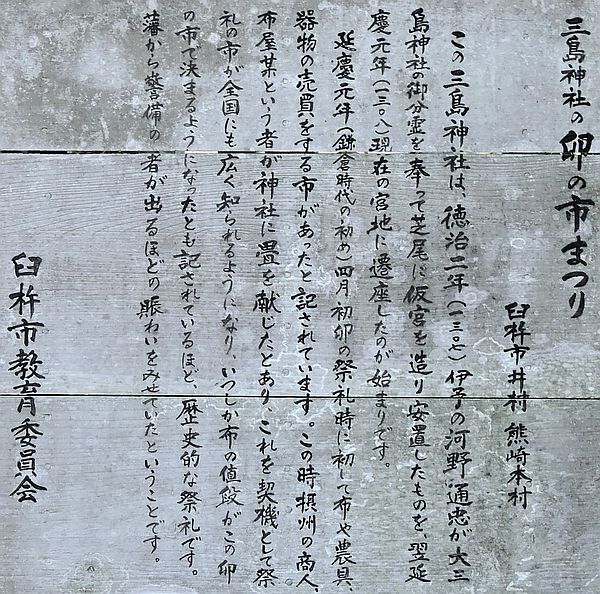 三島神社の卯の市まつり
臼杵市井村 熊崎本村
この三島神社は、徳治二年(一三〇七)伊予の河野通忠が大三
島神社の御分霊を奉って芝尾に仮宮を造り安置したものを、翌延
慶元年(一三〇八)現在の宮地に遷座したのが始まりです。
延慶元年(鎌倉時代の初め)四月初卯の祭礼時に初して布や農具、
器物の売買をする市があったと記されています。この時摂州の商人、
布屋某という者が神社に畳を献じたとあり、これを契機として祭
礼の市が全国にも広く知られるようになり、いつしか布の値段がこの卯
の市で決まるようになったとも記されているほど、歴史的な祭礼です。
藩から警備の者が出るほどの賑わいをみせていたということです。
臼杵市教育委員会